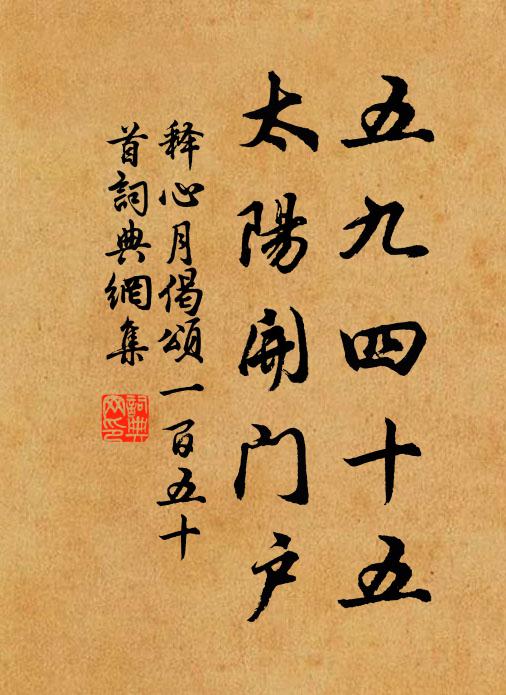 五九四十五
太陽開门户
释心月偈頌一百五十
首詞典網集
詞典
网印